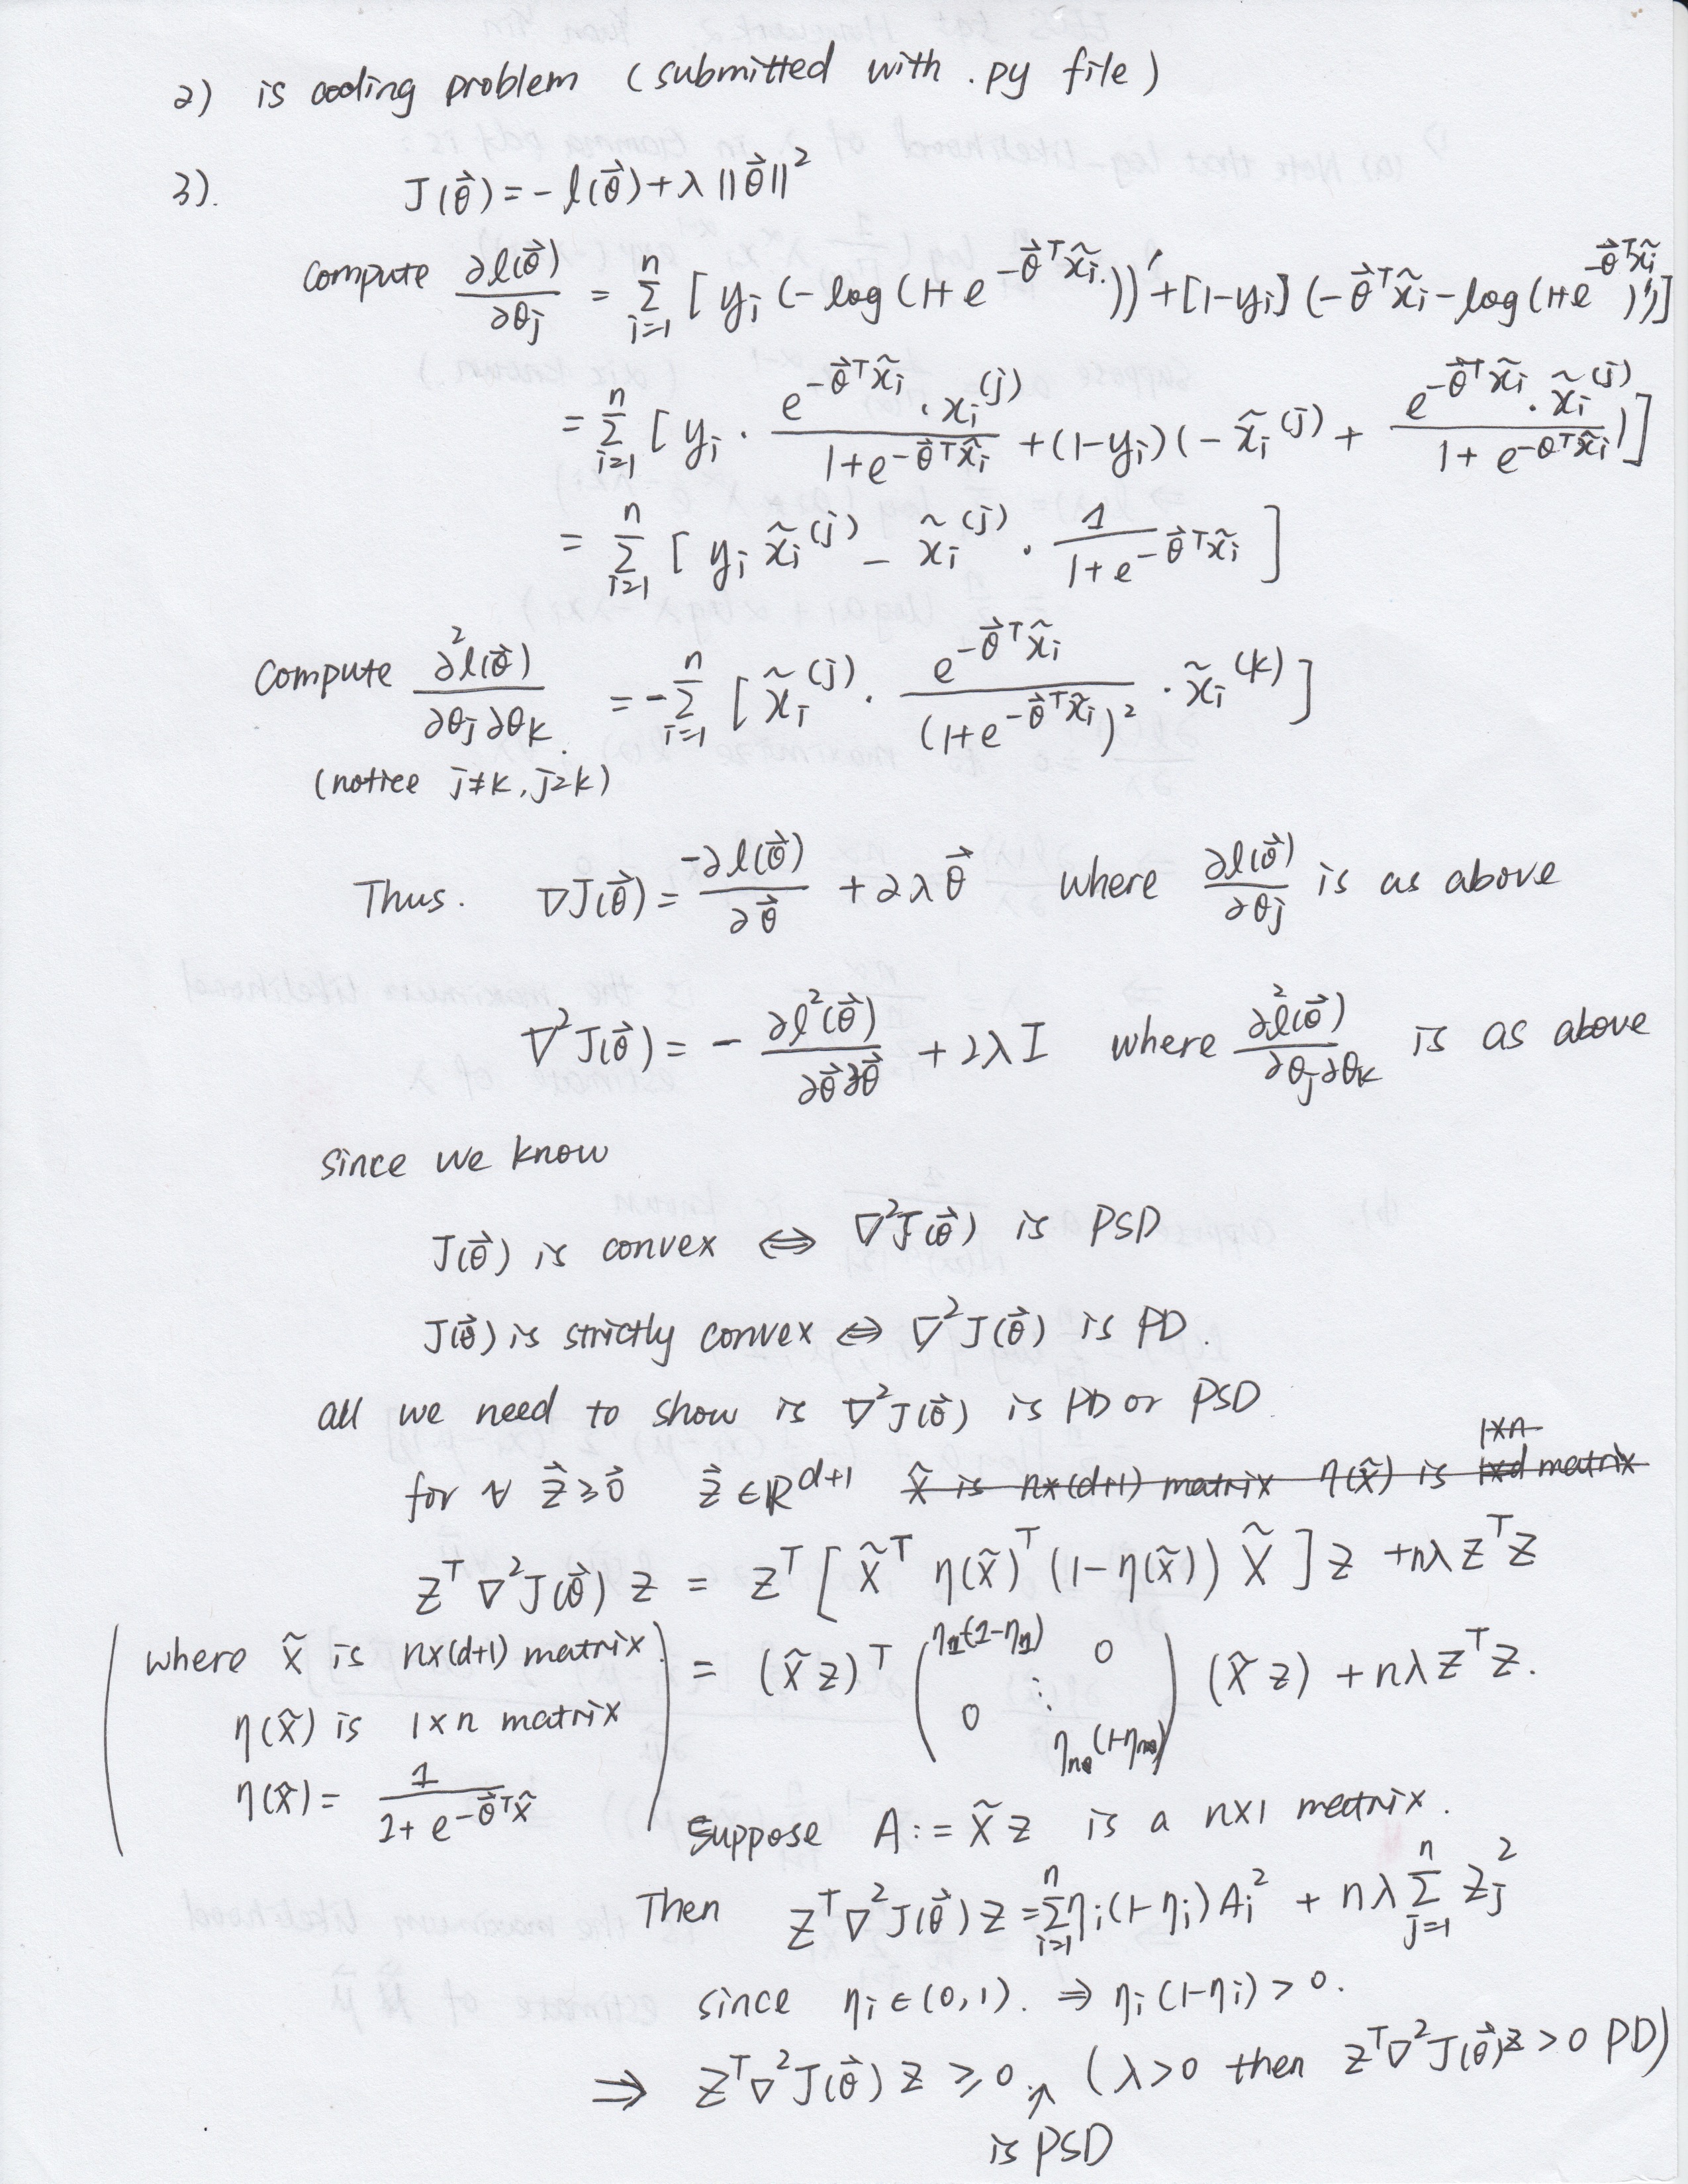 2) is coding problem (submitted with .py file)
3). J(θ⃗) = - l(θ⃗) + λ ||θ⃗||²
Compute ∂l(θ⃗)/∂θj = Σ_{i=1}^n [ yi (-log(1+e^{-θ⃗ᵀx̃i}))' + [1-yi] (-θ⃗ᵀx̃i - log(1+e^{-θ⃗ᵀx̃i})')]
= Σ_{i=1}^n [ yi · (e^{-θ⃗ᵀx̃i} · xi^(j))/(1+e^{-θ⃗ᵀx̃i}) + (1-yi)(-x̃i^(j) + (e^{-θ⃗ᵀx̃i} · x̃i^(j))/(1+e^{-θᵀx̃i}))]
= Σ_{i=1}^n [ yi x̃i^(j) - x̃i^(j) · 1/(1+e^{-θ⃗ᵀx̃i}) ]
Compute ∂²l(θ⃗)/∂θj∂θk = -Σ_{i=1}^n [ x̃i^(j) · e^{-θ⃗ᵀx̃i}/(1+e^{-θ⃗ᵀx̃i})² · x̃i^(k) ]
(notice j≠k, j=k)
Thus. ∇J(θ⃗) = -∂l(θ⃗)/∂θ⃗ + 2λθ⃗ where ∂l(θ⃗)/∂θj is as above
∇²J(θ⃗) = - ∂l²(θ⃗)/∂θ⃗∂θ⃗ + 2λI where ∂²l(θ⃗)/∂θj∂θk is as above
since we know
J(θ⃗) is convex ⇔ ∇²J(θ⃗) is PSD
J(θ⃗) is strictly convex ⇔ ∇²J(θ⃗) is PD.
all we need to show is ∇²J(θ⃗) is PD or PSD
for ∀ z⃗ ≥ 0⃗ z⃗ ∈ ℝ^{d+1} x̃ is n×(d+1) matrix η(x̃) is 1×n 1×d matrix
zᵀ∇²J(θ⃗) z = zᵀ [ X̃ᵀ η(x̃)ᵀ (1-η(x̃)) X̃ ] z + nλ zᵀz
(where x̃ is n×(d+1) matrix.
η(x̃) is 1×n matrix
η(x̃) = 1/(1+e^{-θ⃗ᵀx̃}))
= (x̃z)ᵀ (η1(1-η1) 0 ⋱ 0 ηn(1-ηn)) (x̃z) + nλzᵀz.
Suppose A := x̃z is a n×1 matrix.
Then zᵀ∇²J(θ⃗)z = Σ_{i=1}^n ηi(1-ηi)Ai² + nλ Σ_{j=1}^n zj²
since ηi ∈ (0,1). ⇒ ηi(1-ηi) > 0.
⇒ zᵀ∇²J(θ⃗) z ≥ 0. ↑ (λ>0 then zᵀ∇²J(θ⃗)z > 0 PD)
is PSD